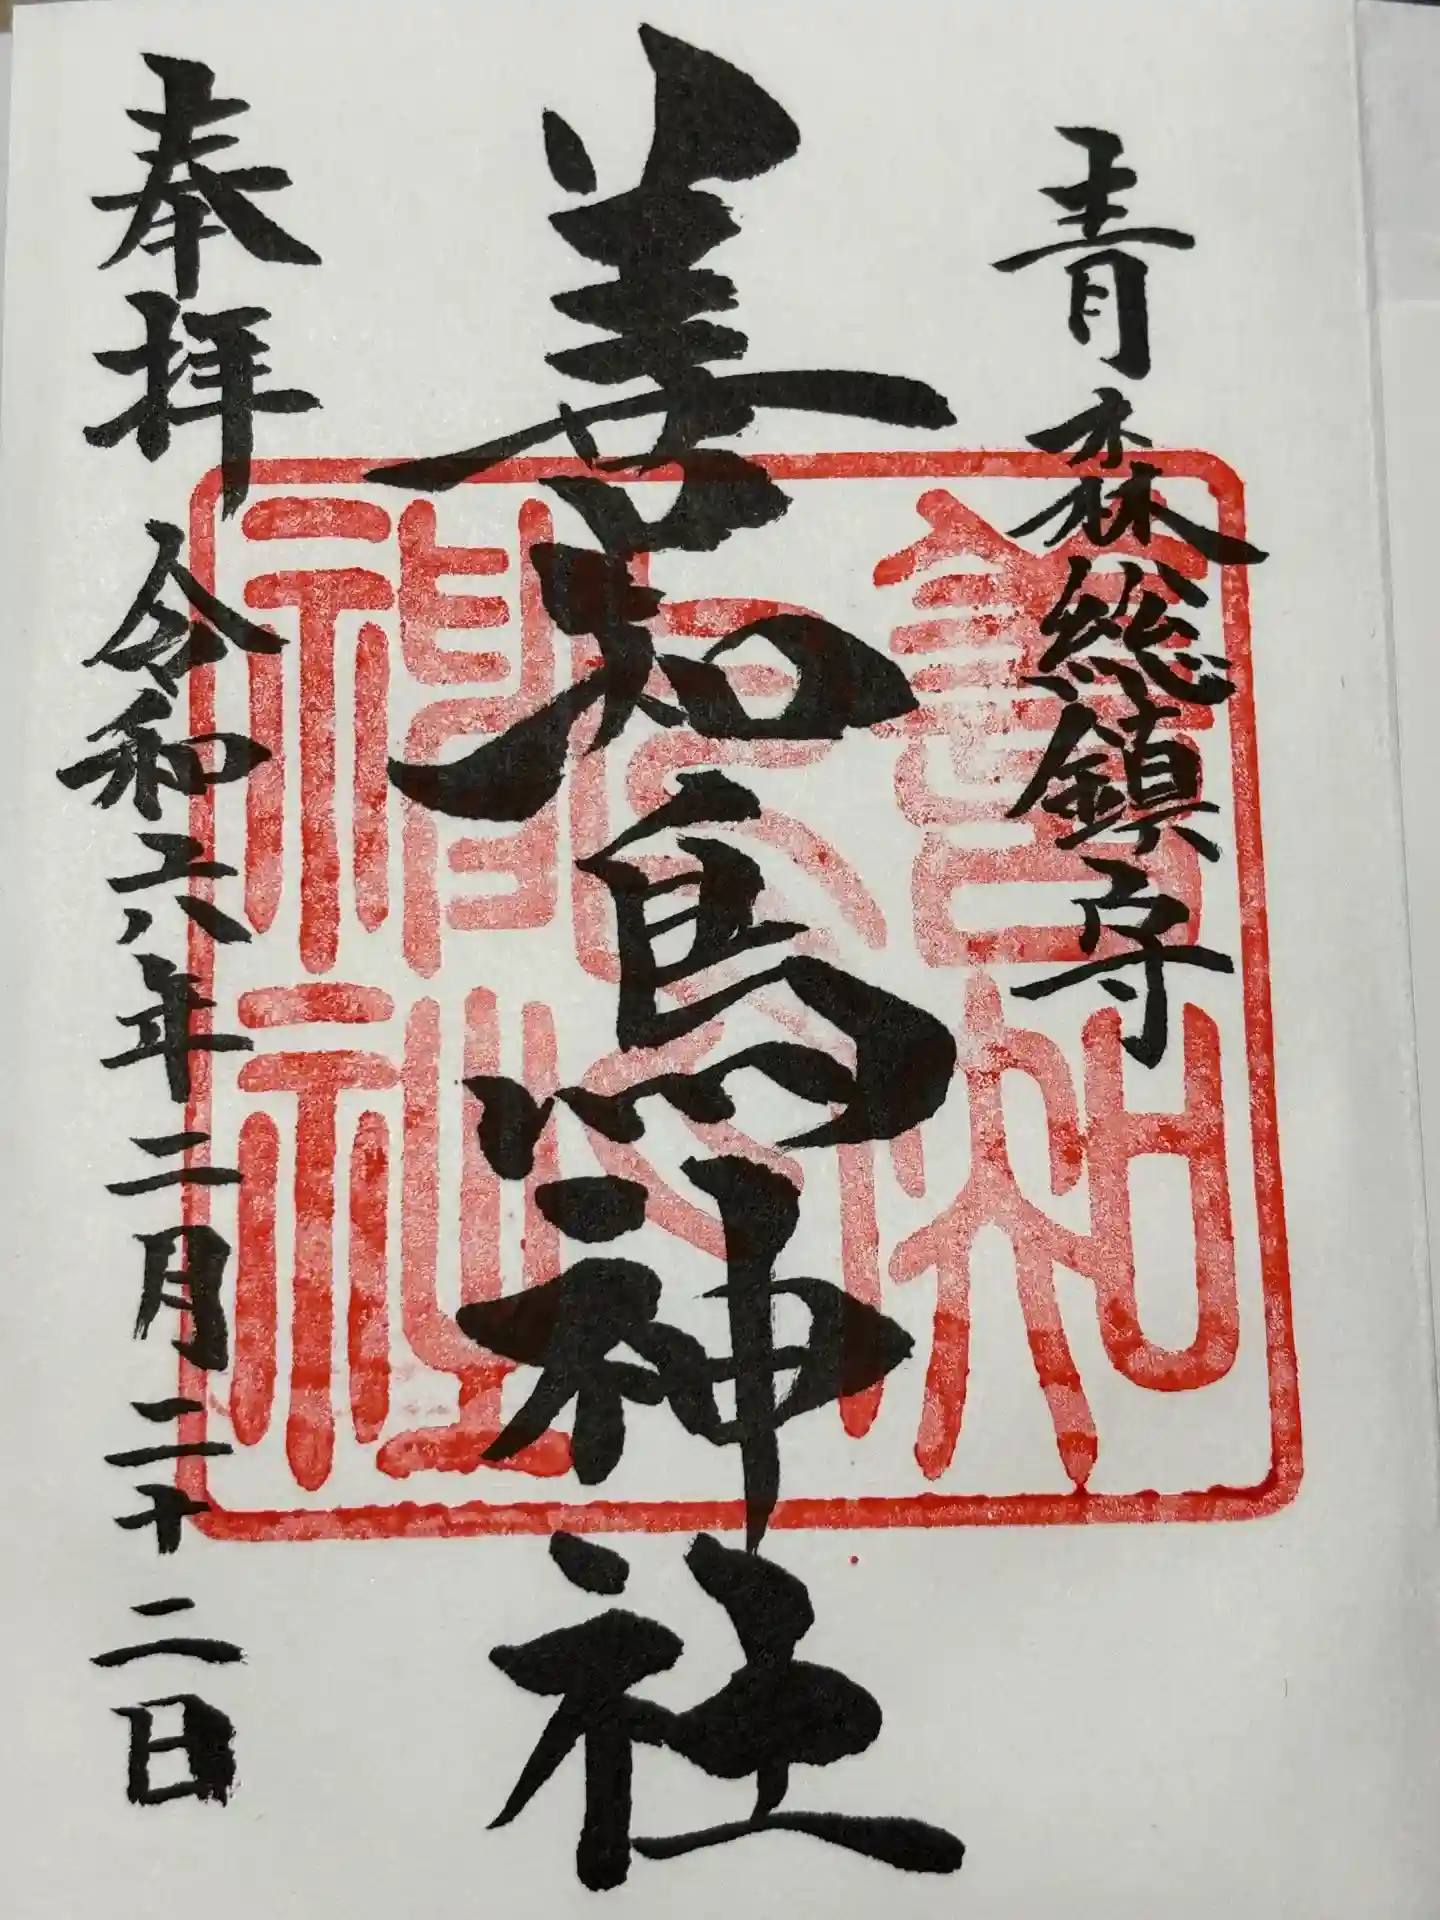 青森総鎮守
善知鳥神社
奉拝 令和六年二月二十二日
善知鳥神社